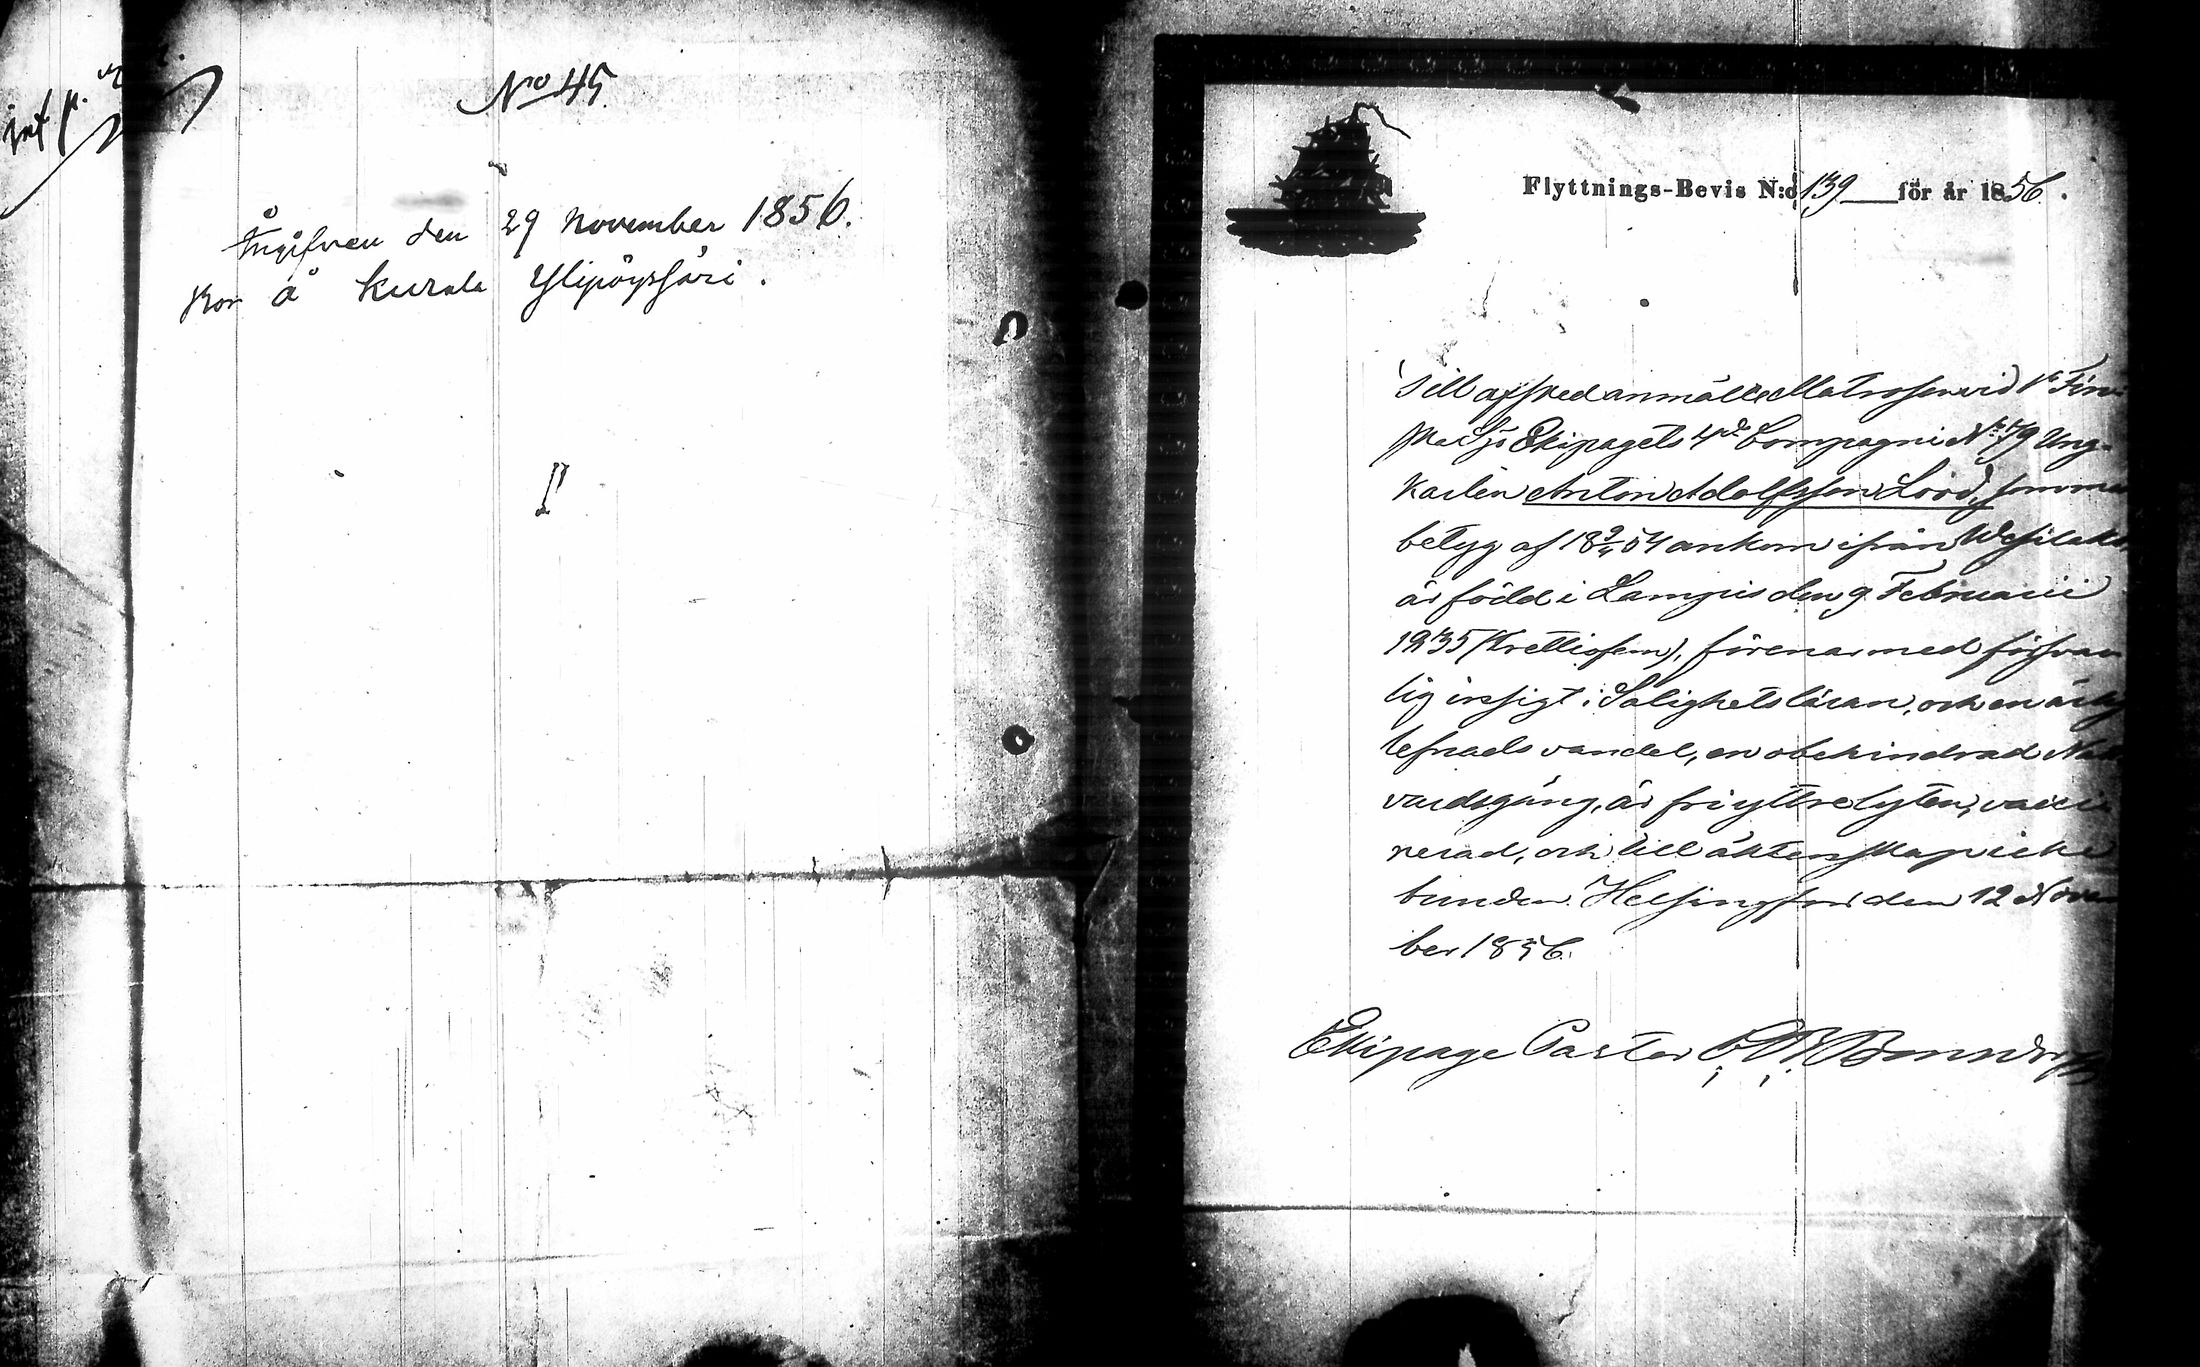 int p.
No 45
Ingifven den 29 November 1856.
Bor å Kurala Ylipöysföri.
Flyttnings-Bevis N:o 139 för år 1856.
Till afsked anmälte Matrosen vid 1a Fin
ska Sjö Ekipagets 4de Compagni No 79 Ung-
karlen Anton Adolfsson Lööd, som med
betyg af 18 9/4 54 ankom ifrån Wesilaks
är född i Lampis den 9 Februarii
1835 (trettiofem), förenar med försvar
lig insigt i Salighetsläran, och en ärlig
lefnads vandel, en obehindrad Natt
vardsgång, är fri yttre lyten, vacci
nerad, och till äktenskap icke
bunden. Helsingfors den 12 Novem
ber 1856.
Ekipage Pastor